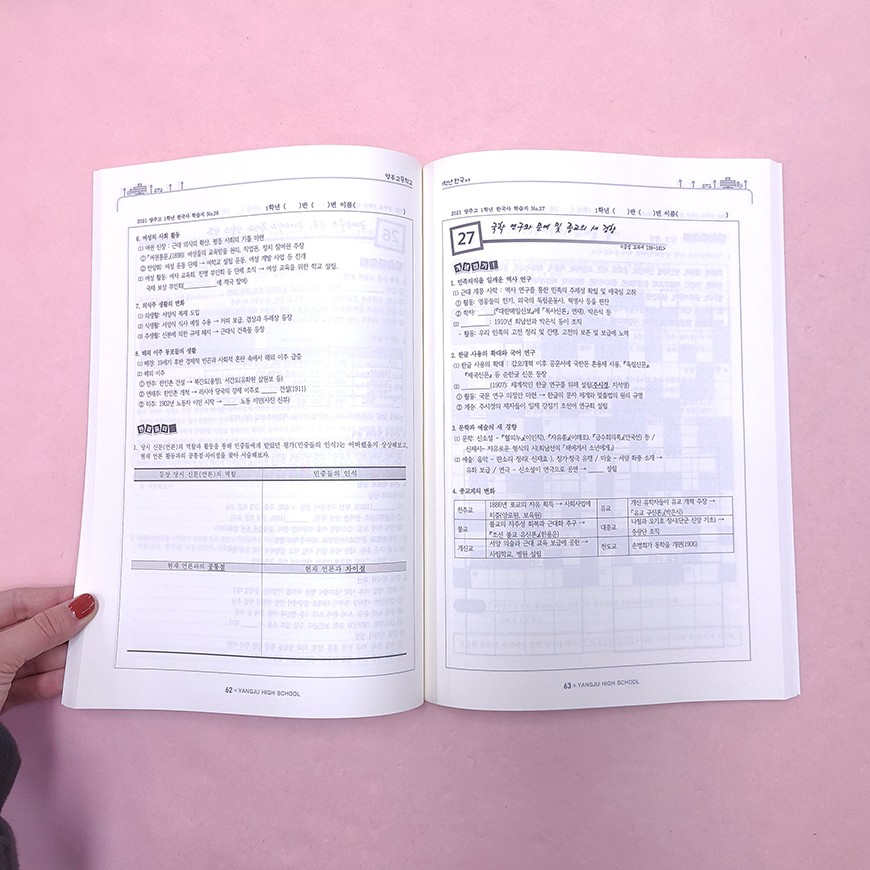 양주고등학교
2021 양주고 1학년 한국사 학습지 No.26 1학년 ( )반 ( )번 이름( )
6. 여성의 사회 활동
⑴ 여권 신장 : 근대 의식의 확산, 평등 사회의 기틀 마련
① 「여권통문」(1898): 여성들의 교육받을 권리, 직업권, 정치 참여권 주장
② 찬양회: 여성 운동 단체 → 여학교 설립 운동, 여성 계발 사업 등 전개
⑵ 여성 활동: 여자 교육회, 진명 부인회 등 단체 조직 → 여성 교육을 위한 학교 설립,
국채 보상 부인회(________에 적극 참여)
7. 의식주 생활의 변화
⑴ 의생활: 서양식 복제 도입
⑵ 식생활: 서양식 식사 예절 수용 → 커피 보급, 겸상과 두레상 등장
⑶ 주생활: 신분에 의한 규제 폐지 → 근대식 건축물 등장
8. 해외 이주 동포들의 생활
⑴ 배경: 19세기 후반 경제적 빈곤과 사회적 혼란 속에서 해외 이주 급증
⑵ 해외 이주
① 만주: 한인촌 건설 → 북간도(용정), 서간도(유화현 삼원보 등)
② 연해주: 한인촌 개척 → 러시아 당국의 강제 이주로 _____ 건설(1911)
③ 미주: 1902년 노동자 이민 시작 → _____ 노동 이민(사진 신부)
1. 당시 신문(언론)의 역할과 활동을 통해 민중들에게 받았던 평가(민중들의 인식)는 어떠했을지 상상해보고,
현재 언론 활동과의 공통점·차이점을 찾아 서술해보자.
등장 당시 신문(언론)의 역할 민중들의 인식
현재 언론과의 공통점 현재 언론과 차이점
62 • YANGJU HIGH SCHOOL
1학년 한국사
2021 양주고 1학년 한국사 학습지 No.27 1학년 ( )반 ( )번 이름( )
27 국학 연구와 문예 및 종교의 새 경향
개념잡기!
1. 민족의식을 일깨운 역사 연구
⑴ 근대 계몽 사학 : 역사 연구를 통한 민족의 주체성 확립 및 애국심 고취
① 활동: 영웅들의 전기, 외국의 독립운동사, 혁명사 등을 편찬
② 학자: _____(『대한매일신보』에 「독사신론」 연재), 박은식 등
⑵ ________ : 1910년 최남선과 박은식 등이 조직
- 활동: 우리 민족의 고전 정리 및 간행, 고전의 보존 및 보급에 노력
2. 한글 사용의 확대와 국어 연구
⑴ 한글 사용의 확대 : 갑오개혁 이후 공문서에 국한문 혼용체 사용, 『독립신문』,
『제국신문』 등 순한글 신문 등장
⑵ ________(1907): 체계적인 한글 연구를 위해 설립(주시경, 지석영)
① 활동: 국문 연구 의정안 마련 → 한글의 문자 체계와 맞춤법의 원리 규명
② 계승: 주시경의 제자들이 일제 강점기 조선어 연구회 설립
3. 문학과 예술의 새 경향
⑴ 문학: 신소설 - 『혈의누』(이인직), 『자유종』(이해조), 『금수회의록』(안국선) 등 /
신체시- 자유로운 형식의 시(최남선의 「해에게서 소년에게」)
⑵ 예술: 음악 - 판소리 정리( 신재효 ), 창가·창극 유행 / 미술 - 서양 화풍 소개 →
유화 보급 / 연극 - 신소설이 연극으로 공연 → _____ 설립
4. 종교계의 변화
천주교 1886년 포교의 자유 획득 → 사회사업에 치중(양로원, 보육원) 유교 개신 유학자들이 유교 개혁 주장 → 「유교 구신론」(박은식)
불교 불교의 자주성 회복과 근대화 추구 → 『조선 불교 유신론』(한용운) 대종교 나철과 오기호 창시(단군 신앙 기초) → 중광단 조직
개신교 서양 의술과 근대 교육 보급에 공헌 → 사립학교, 병원 설립 천도교 손병희가 동학을 개편(1906)
63 • YANGJU HIGH SCHOOL